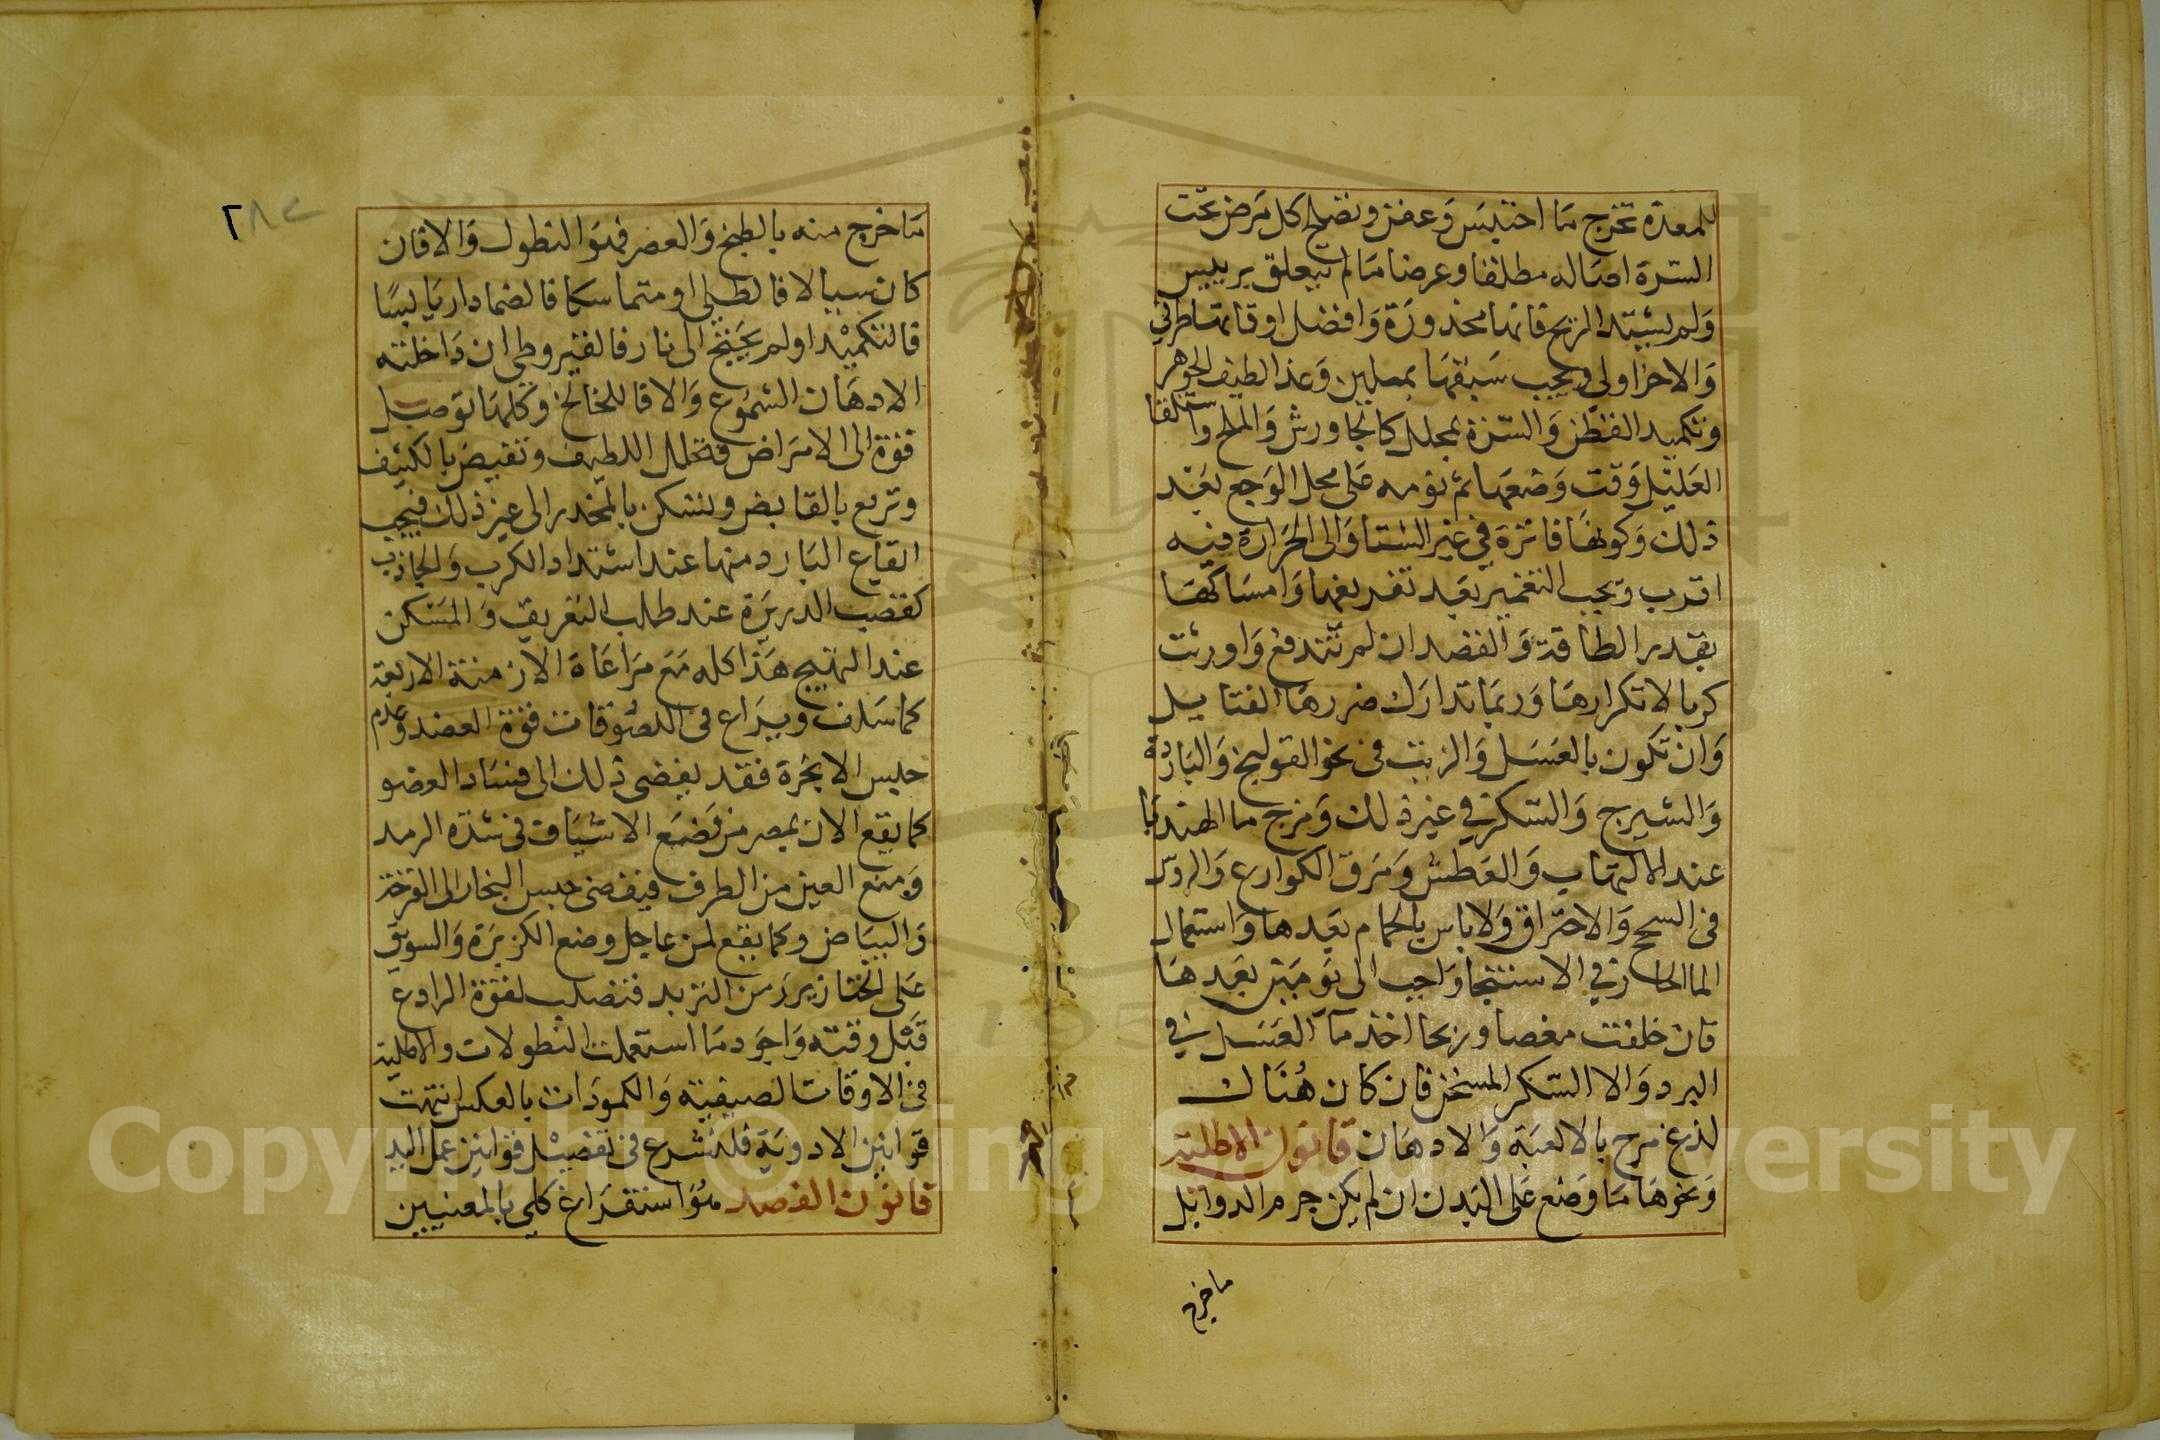 للمعدة تخرج ما احتبس وعفن وتصلح كل مرض تحت
السرة اصاله مطلقا وعرضا ما لم يتعلق بريس
ولم يشتد الريح فانها محذورة وافضل اوقاتها طرفي
والاحر اولى ويجب سبقها بملين وغذا لطيف الجوهر
وتكميد القطن والسرة بمحلل كالجاورش والملح واستلقا
العليل وقت وضعها ثم نومه على محل الوجع بعد
ذلك وكونها فاترة في غير الشتا والى الحرارة فيه
اقرب ويجب التغمير بعد تفريغها وامساكها
بقدر الطاقة والفصد ان لم تندفع واورثت
كربا لا تكرارها وربما تدارك ضررها الفتايل
وان تكون بالعسل والزيت في نحو القولنج والباردة
والشيرج والسكر في غير ذلك ومزج ما الهندبا
عند الالتهاب والعطش ومرق الكوارع والروس
في السحج والاحتراق ولا باس بالحمام بعدها واستعمال
الما الحار في الاستنجا واجب الى يومين بعدها
فان خلفت مغصا وريحا اخذ ما العسل في
البرد والا السكر المسخن فان كان هناك
لذع مزج بالالعبة والادهان قانون الاطلية
ونحوها ما وضع على البدن ان لم يكن جرم الدوا بل
ما خرج
٢٨٢
ما خرج منه بالطبخ والعصر فهو النطول والا فان
كان سيالا فالطلى او متماسكا فالضماد او يابسا
فالتكميد او لم يحتج الى نار فالقيروطي ان داخلته
الادهان الشموع والا فاللخالخ وكلها توصيل
قوة الى الامراض فتحلل اللطيف وتقبض بالكثيف
وتردع بالقابض وتسكن بالمخدر الى غير ذلك فيجب
ايقاع البارد منها عند اشتداد الكرب والجاذب
كقصب الذريرة عند طلب التعريق والمسكن
عند التهييج هذا كله مع مراعاة الازمنة الاربعة
كما سلف ويراع في اللصوقات قوة العضد وعدم
حبس الابخرة فقد يفضي ذلك الى فساد العضو
كما يقع الان بمصر من وضع الاشياف في شدة الرمد
ومنع العين من الطرف فيفضي حبس البخار الى القرحة
والبياض وكما يقع لمن عاجل وضع الكزبرة والسويق
على الخنازير زمن التزيد فتصلب لقوة الرادع
قبل وقته واجود ما استعملت النطولات والاطلية
في الاوقات الصيفية والكمودات بالعكس انتهت
قوانين الادوية فلنشرع في تفصيل قوانين عمل اليد
قانون الفصد هو استفراغ كلي بالمعنيين
Copyright © King Saud University